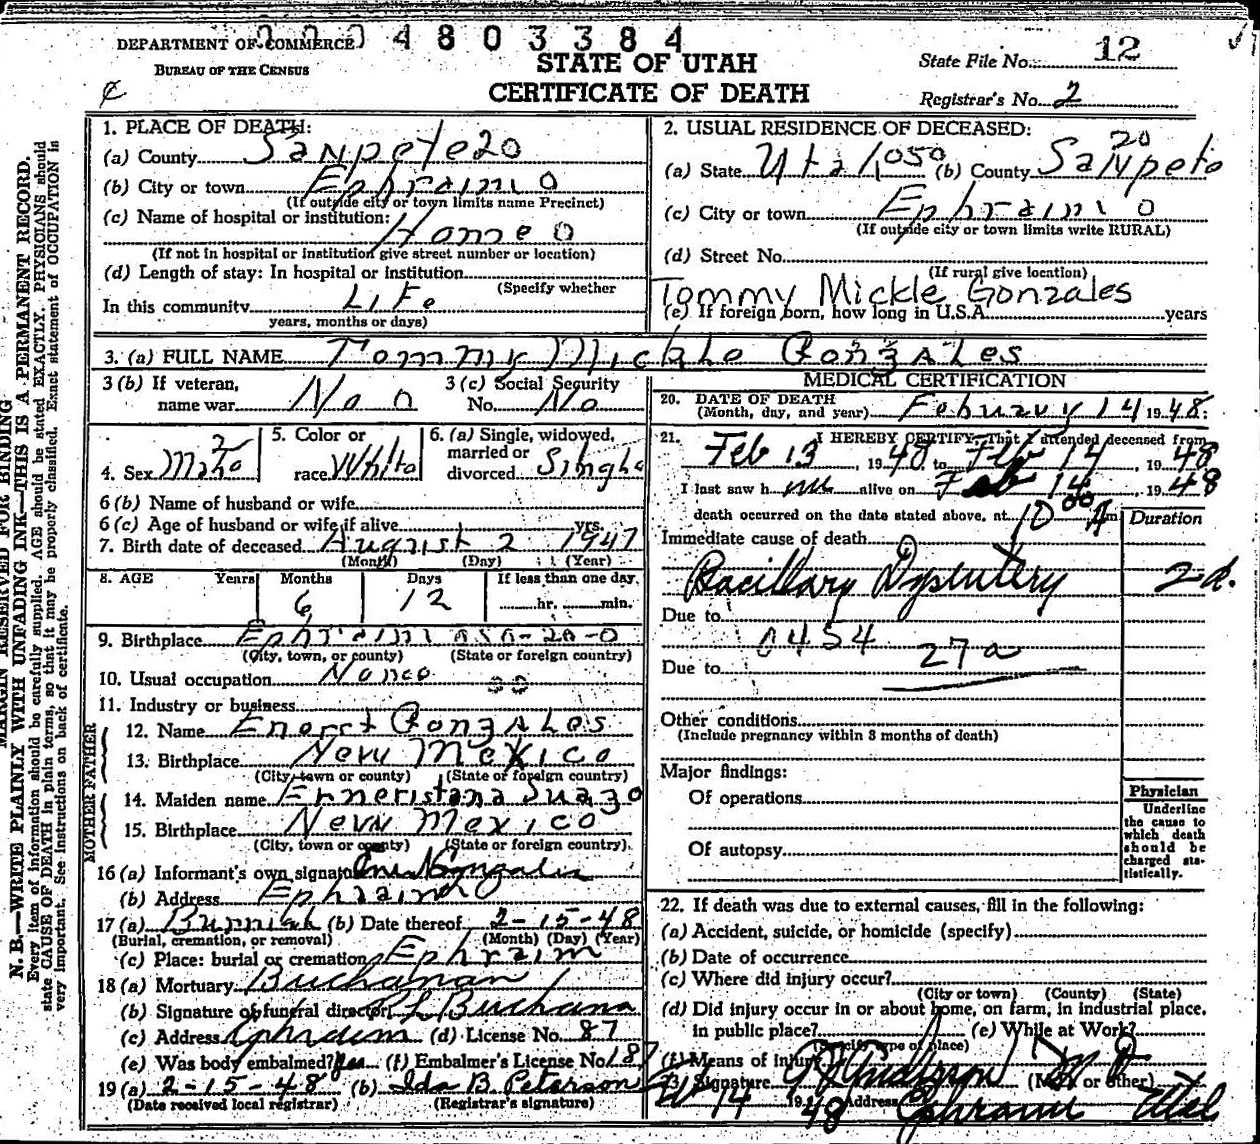 0004803384
DEPARTMENT OF COMMERCE
BUREAU OF THE CENSUS
STATE OF UTAH
CERTIFICATE OF DEATH
State File No. 12
Registrar's No. 2
MARGIN RESERVED FOR BINDING
N. B.—WRITE PLAINLY WITH UNFADING INK—THIS IS A PERMANENT RECORD.
Every item of information should be carefully supplied. AGE should be stated EXACTLY. PHYSICIANS should
state CAUSE OF DEATH in plain terms, so that it may be properly classified. Exact statement of OCCUPATION is
very important. See instructions on back of certificate.
1. PLACE OF DEATH:
(a) County Sanpete 20
(b) City or town Ephraim 0
(If outside city or town limits name Precinct)
(c) Name of hospital or institution:
Home 0
(If not in hospital or institution give street number or location)
(d) Length of stay: In hospital or institution
(Specify whether
In this community Life
years, months or days)
2. USUAL RESIDENCE OF DECEASED:
(a) State Utah 050 (b) County Sanpete 20
(c) City or town Ephraim 0
(If outside city or town limits write RURAL)
(d) Street No.
(If rural give location)
Tommy Mickle Gonzales
(e) If foreign born, how long in U.S.A. years
3. (a) FULL NAME Tommy Mickle Gonzales
3 (b) If veteran, name war No 0
3 (c) Social Security No. No
4. Sex Male 2
5. Color or race White
6. (a) Single, widowed, married or divorced Single
6 (b) Name of husband or wife
6 (c) Age of husband or wife if alive yrs.
7. Birth date of deceased August 2 1947
(Month) (Day) (Year)
8. AGE Years Months Days If less than one day
6 12 hr. min.
9. Birthplace Ephraim 050-20-0
(City, town, or county) (State or foreign country)
10. Usual occupation None
11. Industry or business
FATHER
12. Name Gonzales
13. Birthplace New Mexico
(City, town or county) (State or foreign country)
MOTHER
14. Maiden name Suazo
15. Birthplace New Mexico
(City, town or county) (State or foreign country)
16 (a) Informant's own signature Gonzales
(b) Address Ephraim
17 (a) (b) Date thereof 2-15-48
(Burial, cremation, or removal) (Month) (Day) (Year)
(c) Place: burial or cremation Ephraim
18 (a) Mortuary Buchanan
(b) Signature of funeral director
(c) Address Ephraim (d) License No. 87
(e) Was body embalmed? yes (f) Embalmer's License No. 187
19 (a) 2-15-48 (b) Ida B. Peterson
(Date received local registrar) (Registrar's signature)
MEDICAL CERTIFICATION
20. DATE OF DEATH
(Month, day, and year) February 14 1948
21. I HEREBY CERTIFY, That I attended deceased from
Feb 13, 1948 to Feb 14, 1948
I last saw h im alive on Feb 14, 1948
death occurred on the date stated above, at 10 00 A m
Duration
Immediate cause of death
Bacillary Dysentery 2 d.
Due to
0454 27a
Due to
Other conditions
(Include pregnancy within 3 months of death)
Major findings:
Of operations
Of autopsy
Physician
Underline
the cause to
which death
should be
charged sta-
tistically.
22. If death was due to external causes, fill in the following:
(a) Accident, suicide, or homicide (specify)
(b) Date of occurrence
(c) Where did injury occur?
(City or town) (County) (State)
(d) Did injury occur in or about home, on farm, in industrial place,
in public place? (e) While at Work?
(Specify type of place)
(f) Means of injury
Signature Anderson M D (M.D. or other)
14 1948 Address Ephraim Utah